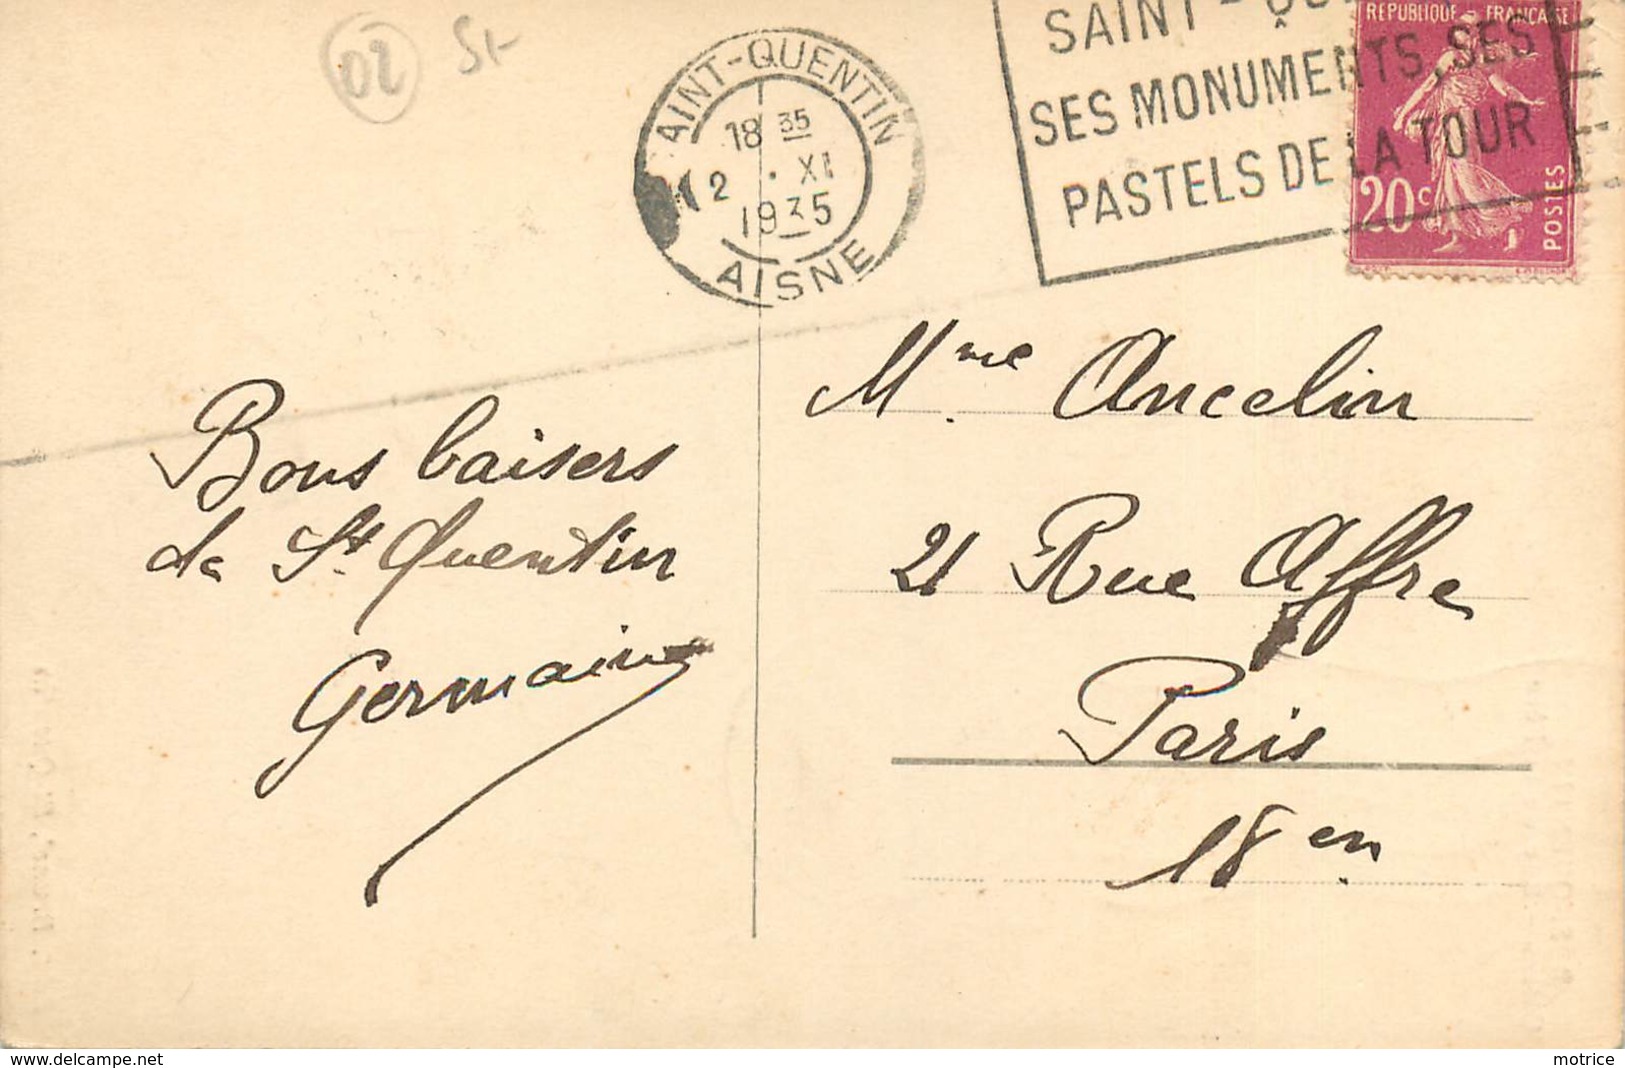 02 St-
SAINT-QUENTIN
18 35
2 · XI
1935
AISNE
SAINT-
SES MONUMENTS, SES
PASTELS DE LA TOUR
REPUBLIQUE FRANÇAISE
20c
POSTES
Bons baisers
de St. Quentin
Germaine
Mme Ancelin
21 Rue Affre
Paris
18en
www.delcampe.net
motrice